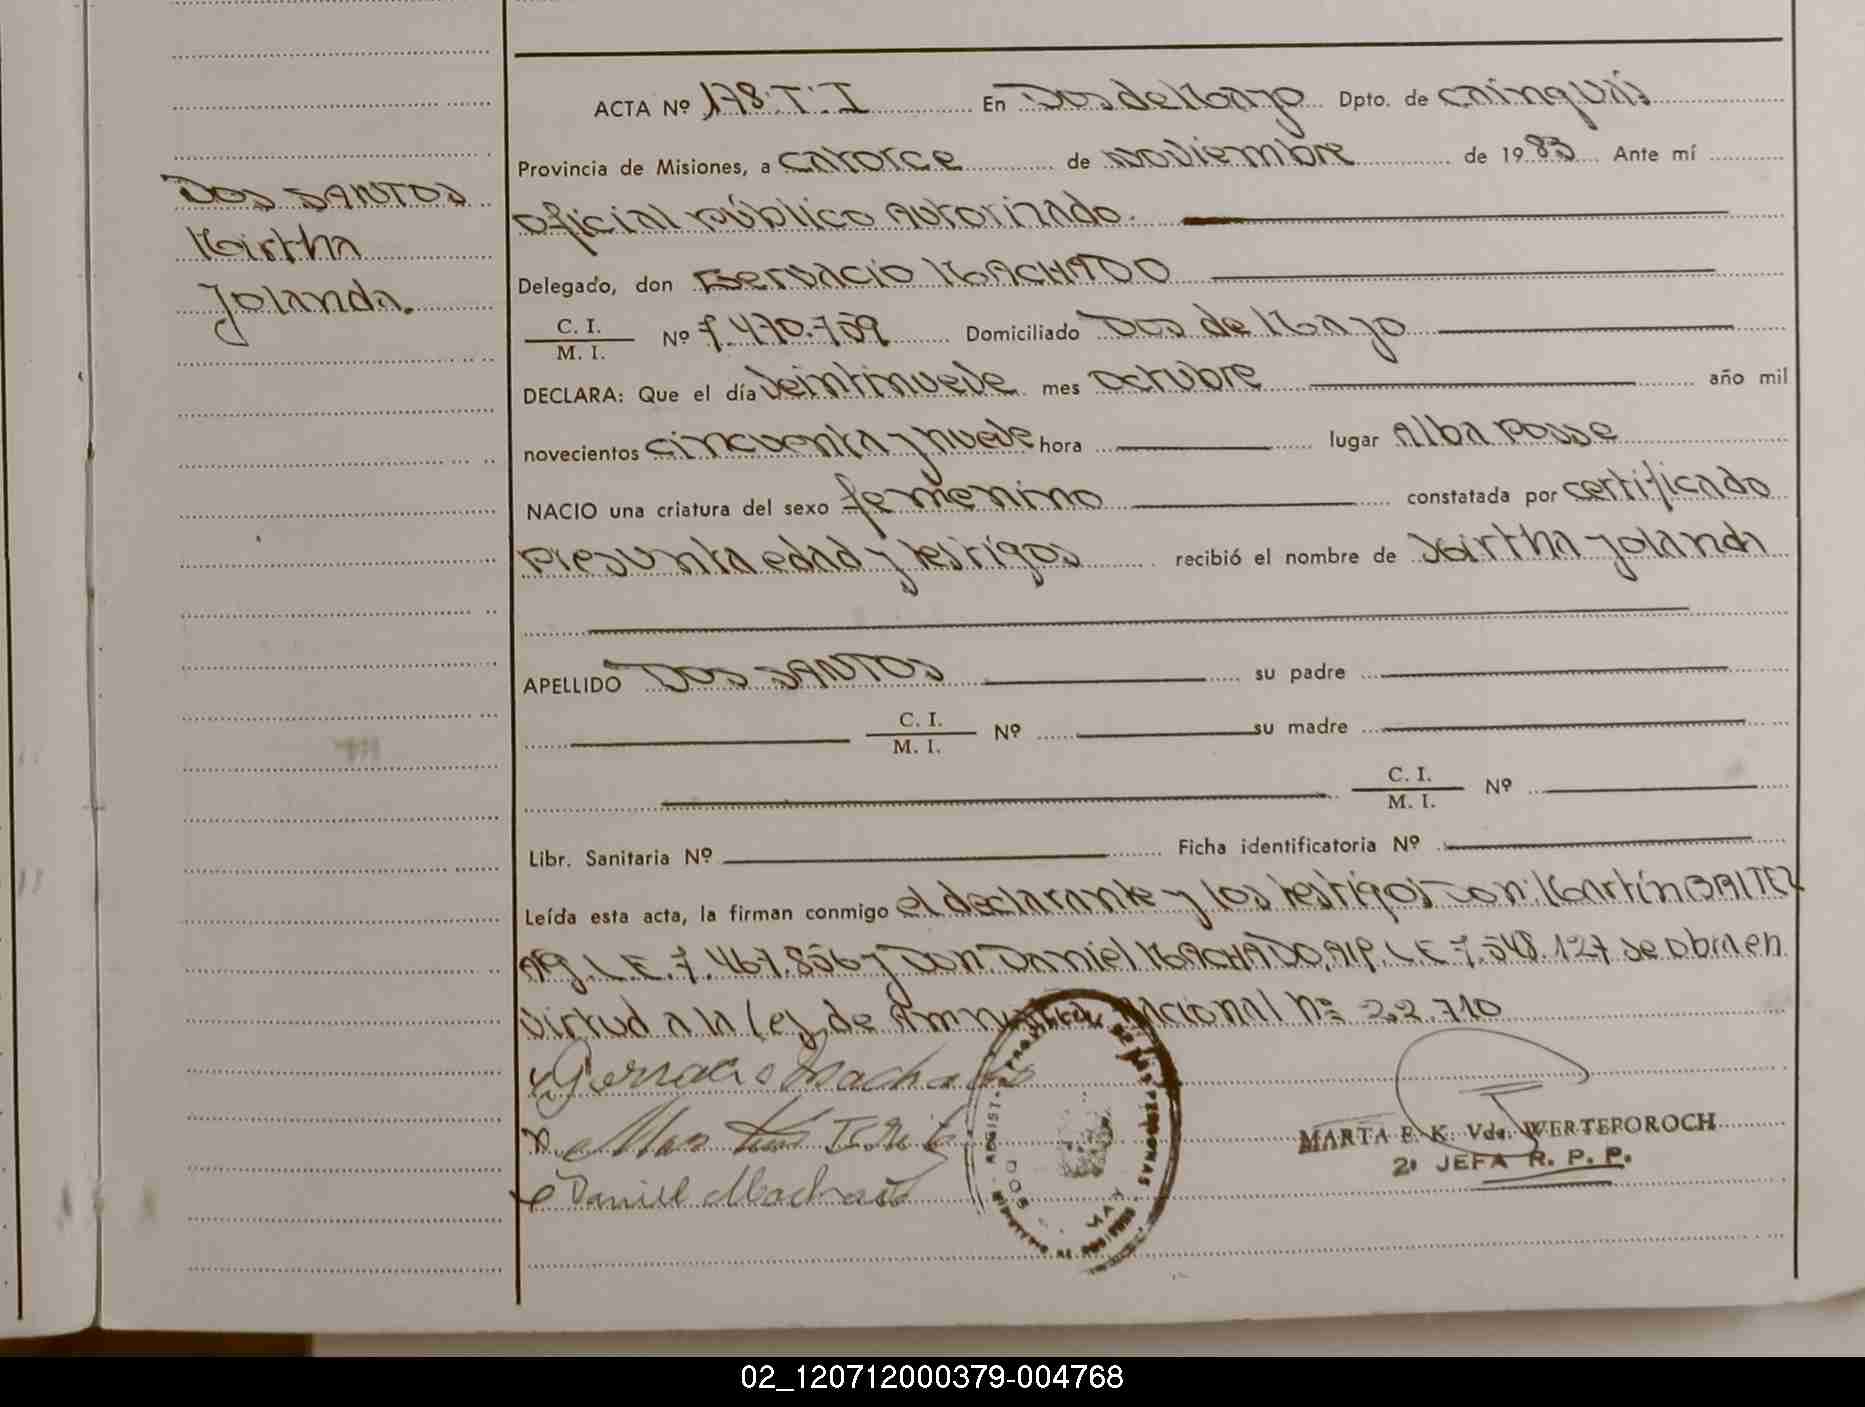 ACTA Nº 178. T. I En Dos de Mayo Dpto. de Cainguás
Provincia de Misiones, a catorce de noviembre de 1983 Ante mí
oficial público autorizado.
Delegado, don Gervacio MACHADO
C. I. / M. I. Nº 7.470.759 Domiciliado Dos de Mayo
DECLARA: Que el día veintinueve mes octubre año mil
novecientos cincuenta y nueve hora lugar Alba Posse
NACIO una criatura del sexo femenino constatada por certificado
presunta edad y testigos recibió el nombre de Mirtha Yolanda
APELLIDO DOS SANTOS su padre
C. I. / M. I. Nº su madre
C. I. / M. I. Nº
Libr. Sanitaria Nº Ficha identificatoria Nº
Leída esta acta, la firman conmigo el declarante y los testigos Don: Martín BAITEZ
Arg. L.E. 7.467.856 y Don Daniel MACHADO, Arg. L.E. 7.548.127 se obra en
virtud a la Ley de Nacional nº 22.710
Gervacio Machado
Daniel Machado
MARTA E. K. Vda. WERTEPOROCH
2º JEFA R. P. P.
DOS SANTOS
Mirtha
Yolanda.
02_120712000379-004768